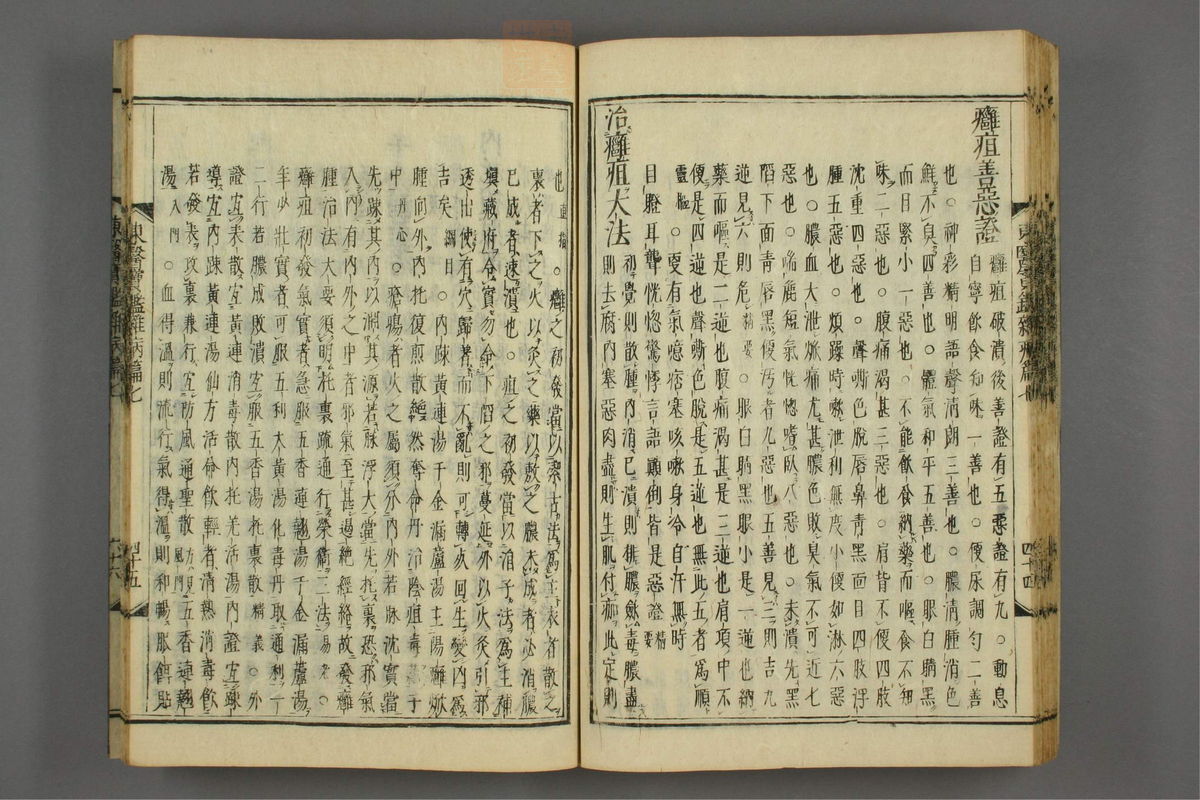 癰疽善惡證
癰疽破潰後善證有五惡證有九○動息
自寧飲食知味一善也○便尿調勻二善
也○神彩精明語聲清朗三善也○膿清腫消色
鮮不臭四善也○體氣和平五善也○眼白睛黑
而目緊小一惡也○不能飲食納藥而嘔食不知
味二惡也○腹痛渴甚三惡也○肩背不便四肢
沈重四惡也○聲嘶色脫唇鼻青黑面目四肢浮
腫五惡也○煩躁時嗽泄利無度小便如淋六惡
也○膿血大泄焮痛尤甚膿色敗臭氣不可近七
惡也○喘麁短氣恍惚嗜臥八惡也○未潰先黑
陷下面青唇黑便污者九惡也○五善見三則吉九
逆見六則危精要○眼白睛黑眼小是一逆也納
藥而嘔是二逆也腹痛渴甚是三逆也肩項中不
便是四逆也聲嘶色脫是五逆也無此五者爲順
靈樞○更有氣噫痞塞咳嗽身冷自汗無時
目瞪耳聾恍惚驚悸言語顚倒皆是惡證精要
治癰疽大法
初覺則散腫內消已潰則排膿斂毒膿盡
則去腐內塞惡肉盡則生肌付痂此定則
也直指○癰之初發當以
裏者下之火以灸之藥以敷之膿未成者必消膿
已成者速潰也○疽之初發當以消子法爲主補
塡藏府令實勿令下陷之邪蔓延外以火灸引邪
透出使有穴歸着而不亂則可轉死回生變凶爲
吉矣綱目○內踈黃連湯千金漏蘆湯主陽癰焮
腫向外內托復煎散
中丹心○瘡瘍者火之屬須分內外若脉沈實當
先踈其內以淵其源若脉浮大當先托裏恐邪氣
入內有內外之中者邪氣至甚遏絶經絡故發癰
腫治法大要須明托裏疏通行榮衛三法易老○
癰疽初發氣實者急服五香連翹湯千金漏蘆湯
年少壯實者可服五利大黃湯化毒丹取通利一
二行若膿成敗潰宜服五香湯托裏散精義○外
證宜表散宜黃連消毒散內托羌活湯內證宜踈
導宜內踈黃連湯仙方活命飲輕者清熱消毒飲
若發表攻裏兼行宜防風通聖散方見風門五香連翹
湯入門○血得溫則流行氣得溫則和暢服餌貼
東醫寶鑑雜病篇七
四十四
東醫寶鑑雜病篇七
四十五